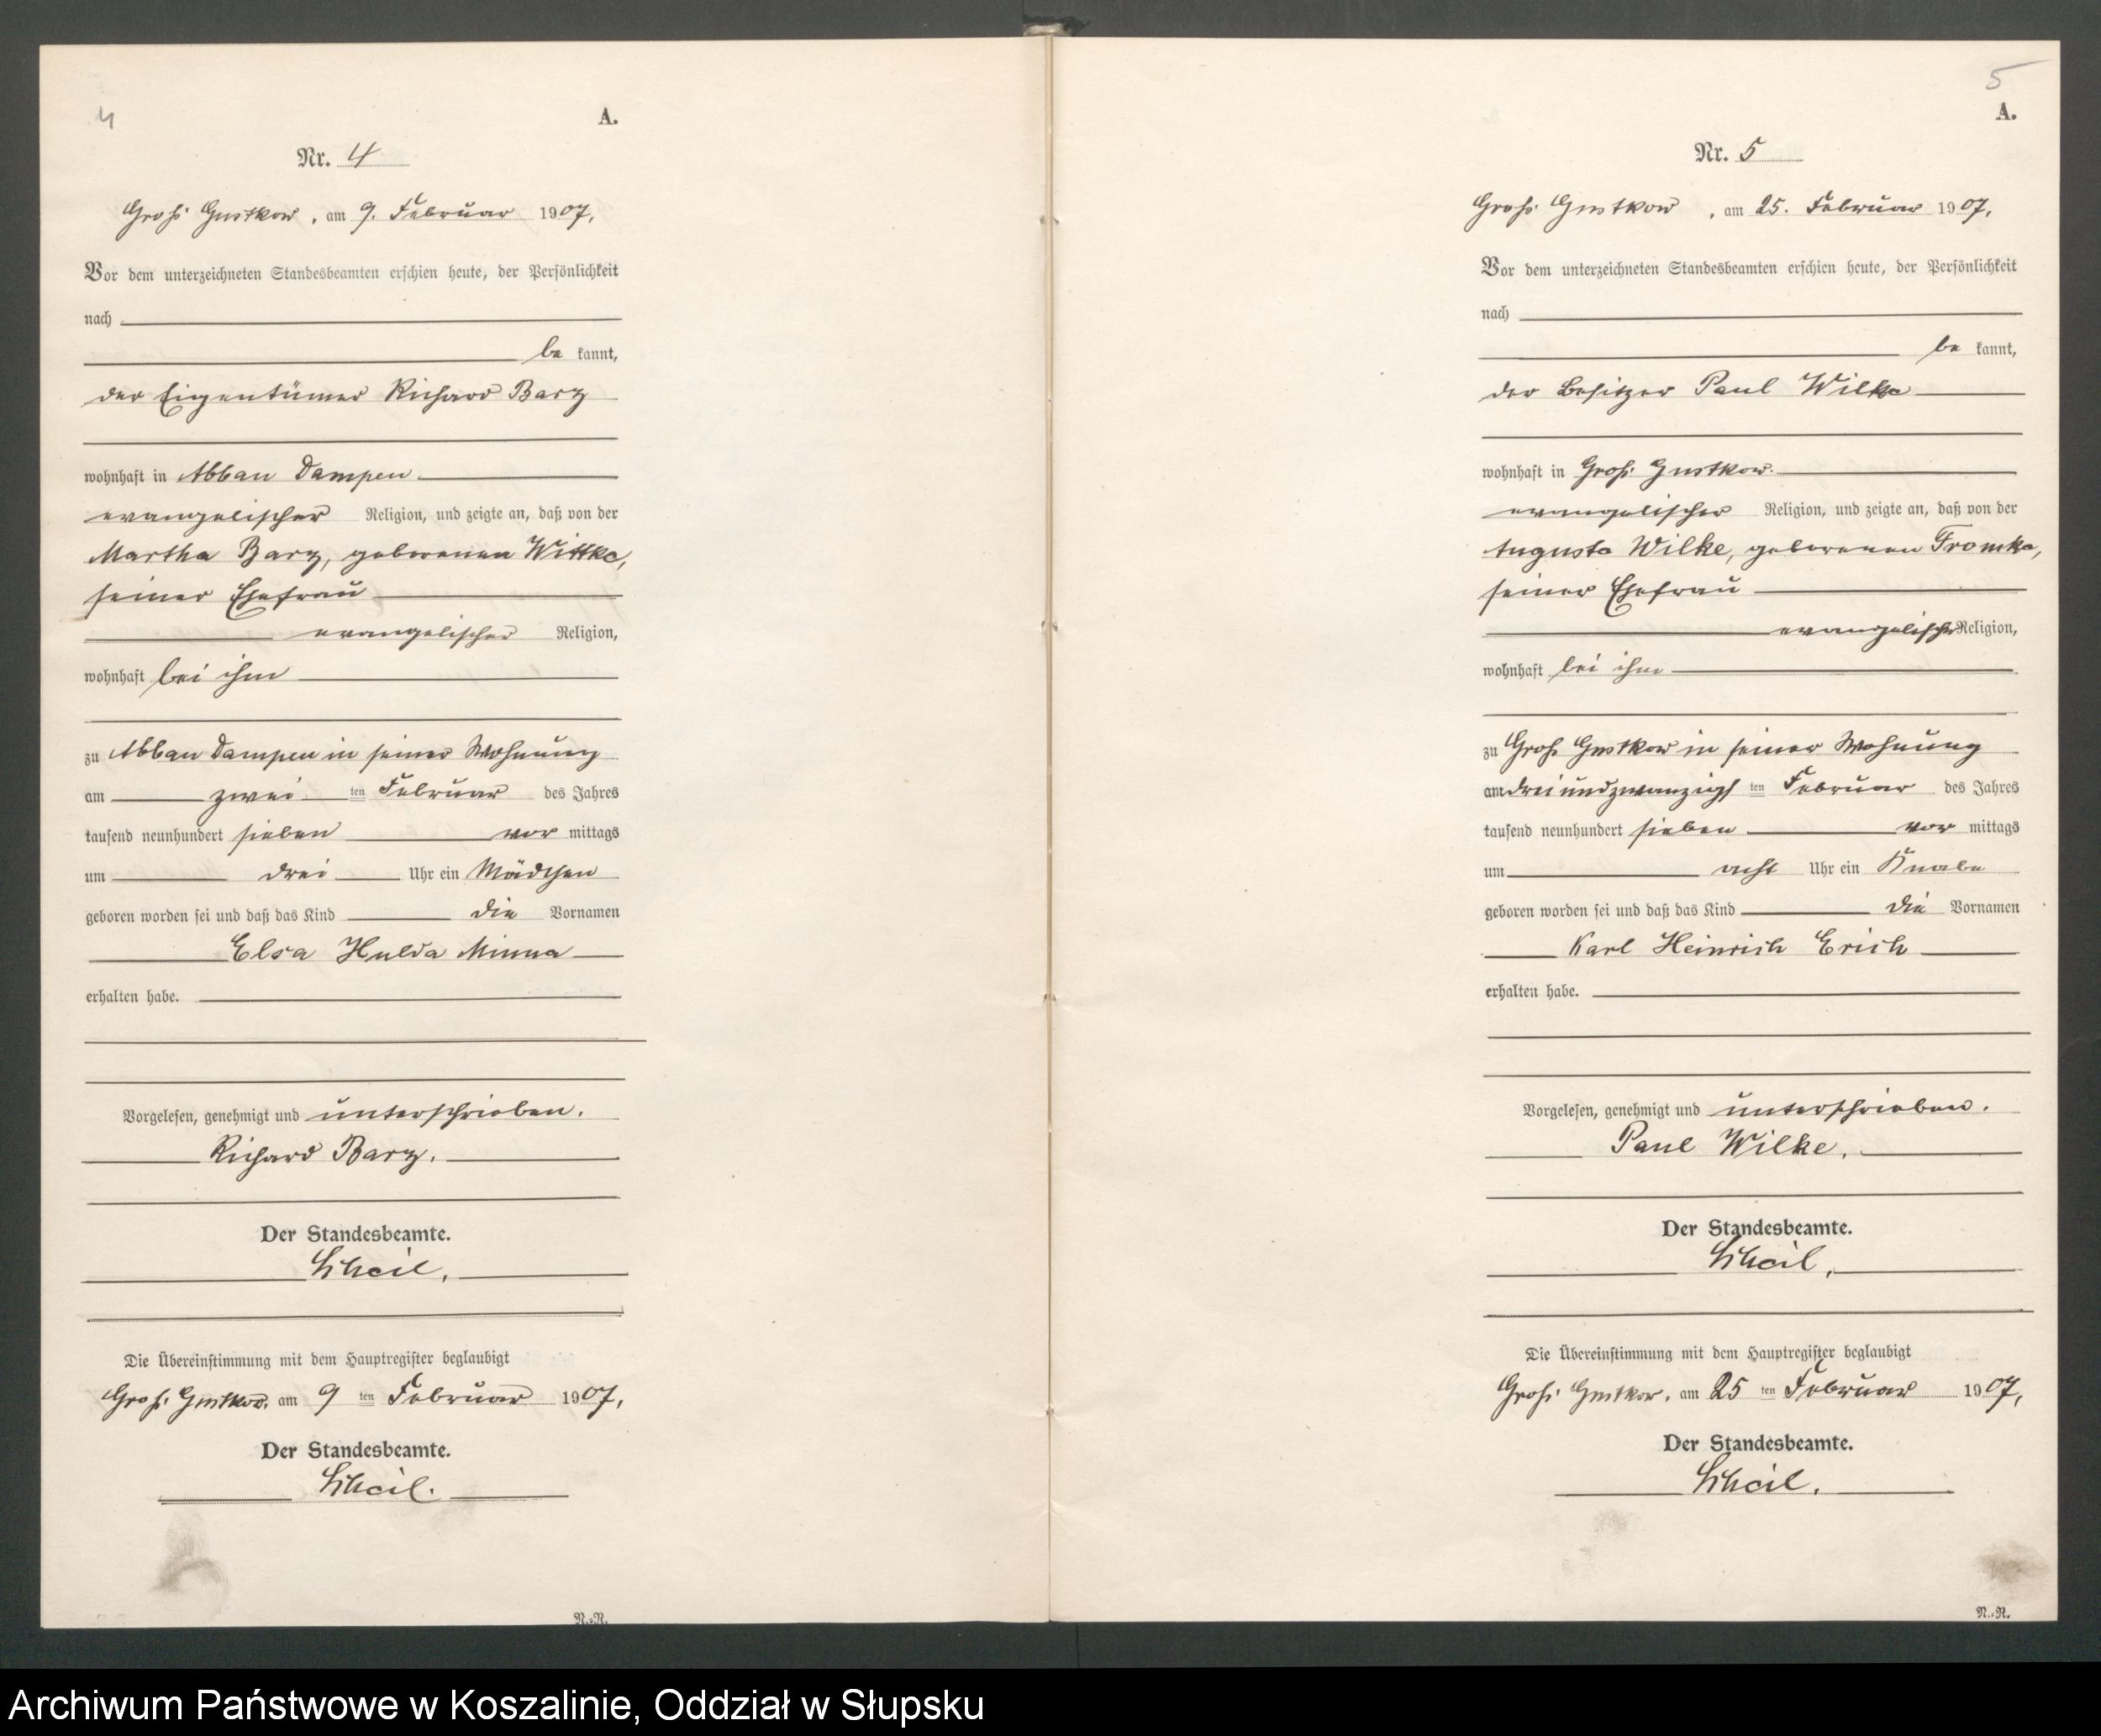 4
A.
Nr. 4
Groß Gustkow, am 9. Februar 1907,
Vor dem unterzeichneten Standesbeamten erschien heute, der Persönlichkeit
nach
be kannt,
der Eigentümer Richard Barz
wohnhaft in Abbau Dampen
evangelischer Religion, und zeigte an, daß von der
Martha Barz, geborenen Wittke,
seiner Ehefrau
evangelischer Religion,
wohnhaft bei ihm
zu Abbau Dampen in seiner Wohnung
am zwei ten Februar des Jahres
tausend neunhundert sieben vor mittags
um drei Uhr ein Mädchen
geboren worden sei und daß das Kind die Vornamen
Elsa Hulda Minna
erhalten habe.
Vorgelesen, genehmigt und unterschrieben.
Richard Barz.
Der Standesbeamte.
Scheil.
Die Übereinstimmung mit dem Hauptregister beglaubigt
Groß Gustkow, am 9 ten Februar 1907,
Der Standesbeamte.
Scheil.
N.-R.
5
A.
Nr. 5
Groß Gustkow, am 25. Februar 1907,
Vor dem unterzeichneten Standesbeamten erschien heute, der Persönlichkeit
nach
be kannt,
der Besitzer Paul Wilke
wohnhaft in Groß Gustkow.
evangelischer Religion, und zeigte an, daß von der
Auguste Wilke, geborenen Fromke,
seiner Ehefrau
evangelischer Religion,
wohnhaft bei ihm
zu Groß Gustkow in seiner Wohnung
am dreiundzwanzigs ten Februar des Jahres
tausend neunhundert sieben vor mittags
um acht Uhr ein Knabe
geboren worden sei und daß das Kind die Vornamen
Karl Heinrich Erich
erhalten habe.
Vorgelesen, genehmigt und unterschrieben.
Paul Wilke.
Der Standesbeamte.
Scheil.
Die Übereinstimmung mit dem Hauptregister beglaubigt
Groß Gustkow, am 25 ten Februar 1907,
Der Standesbeamte.
Scheil.
N.-R.
Archiwum Państwowe w Koszalinie, Oddział w Słupsku